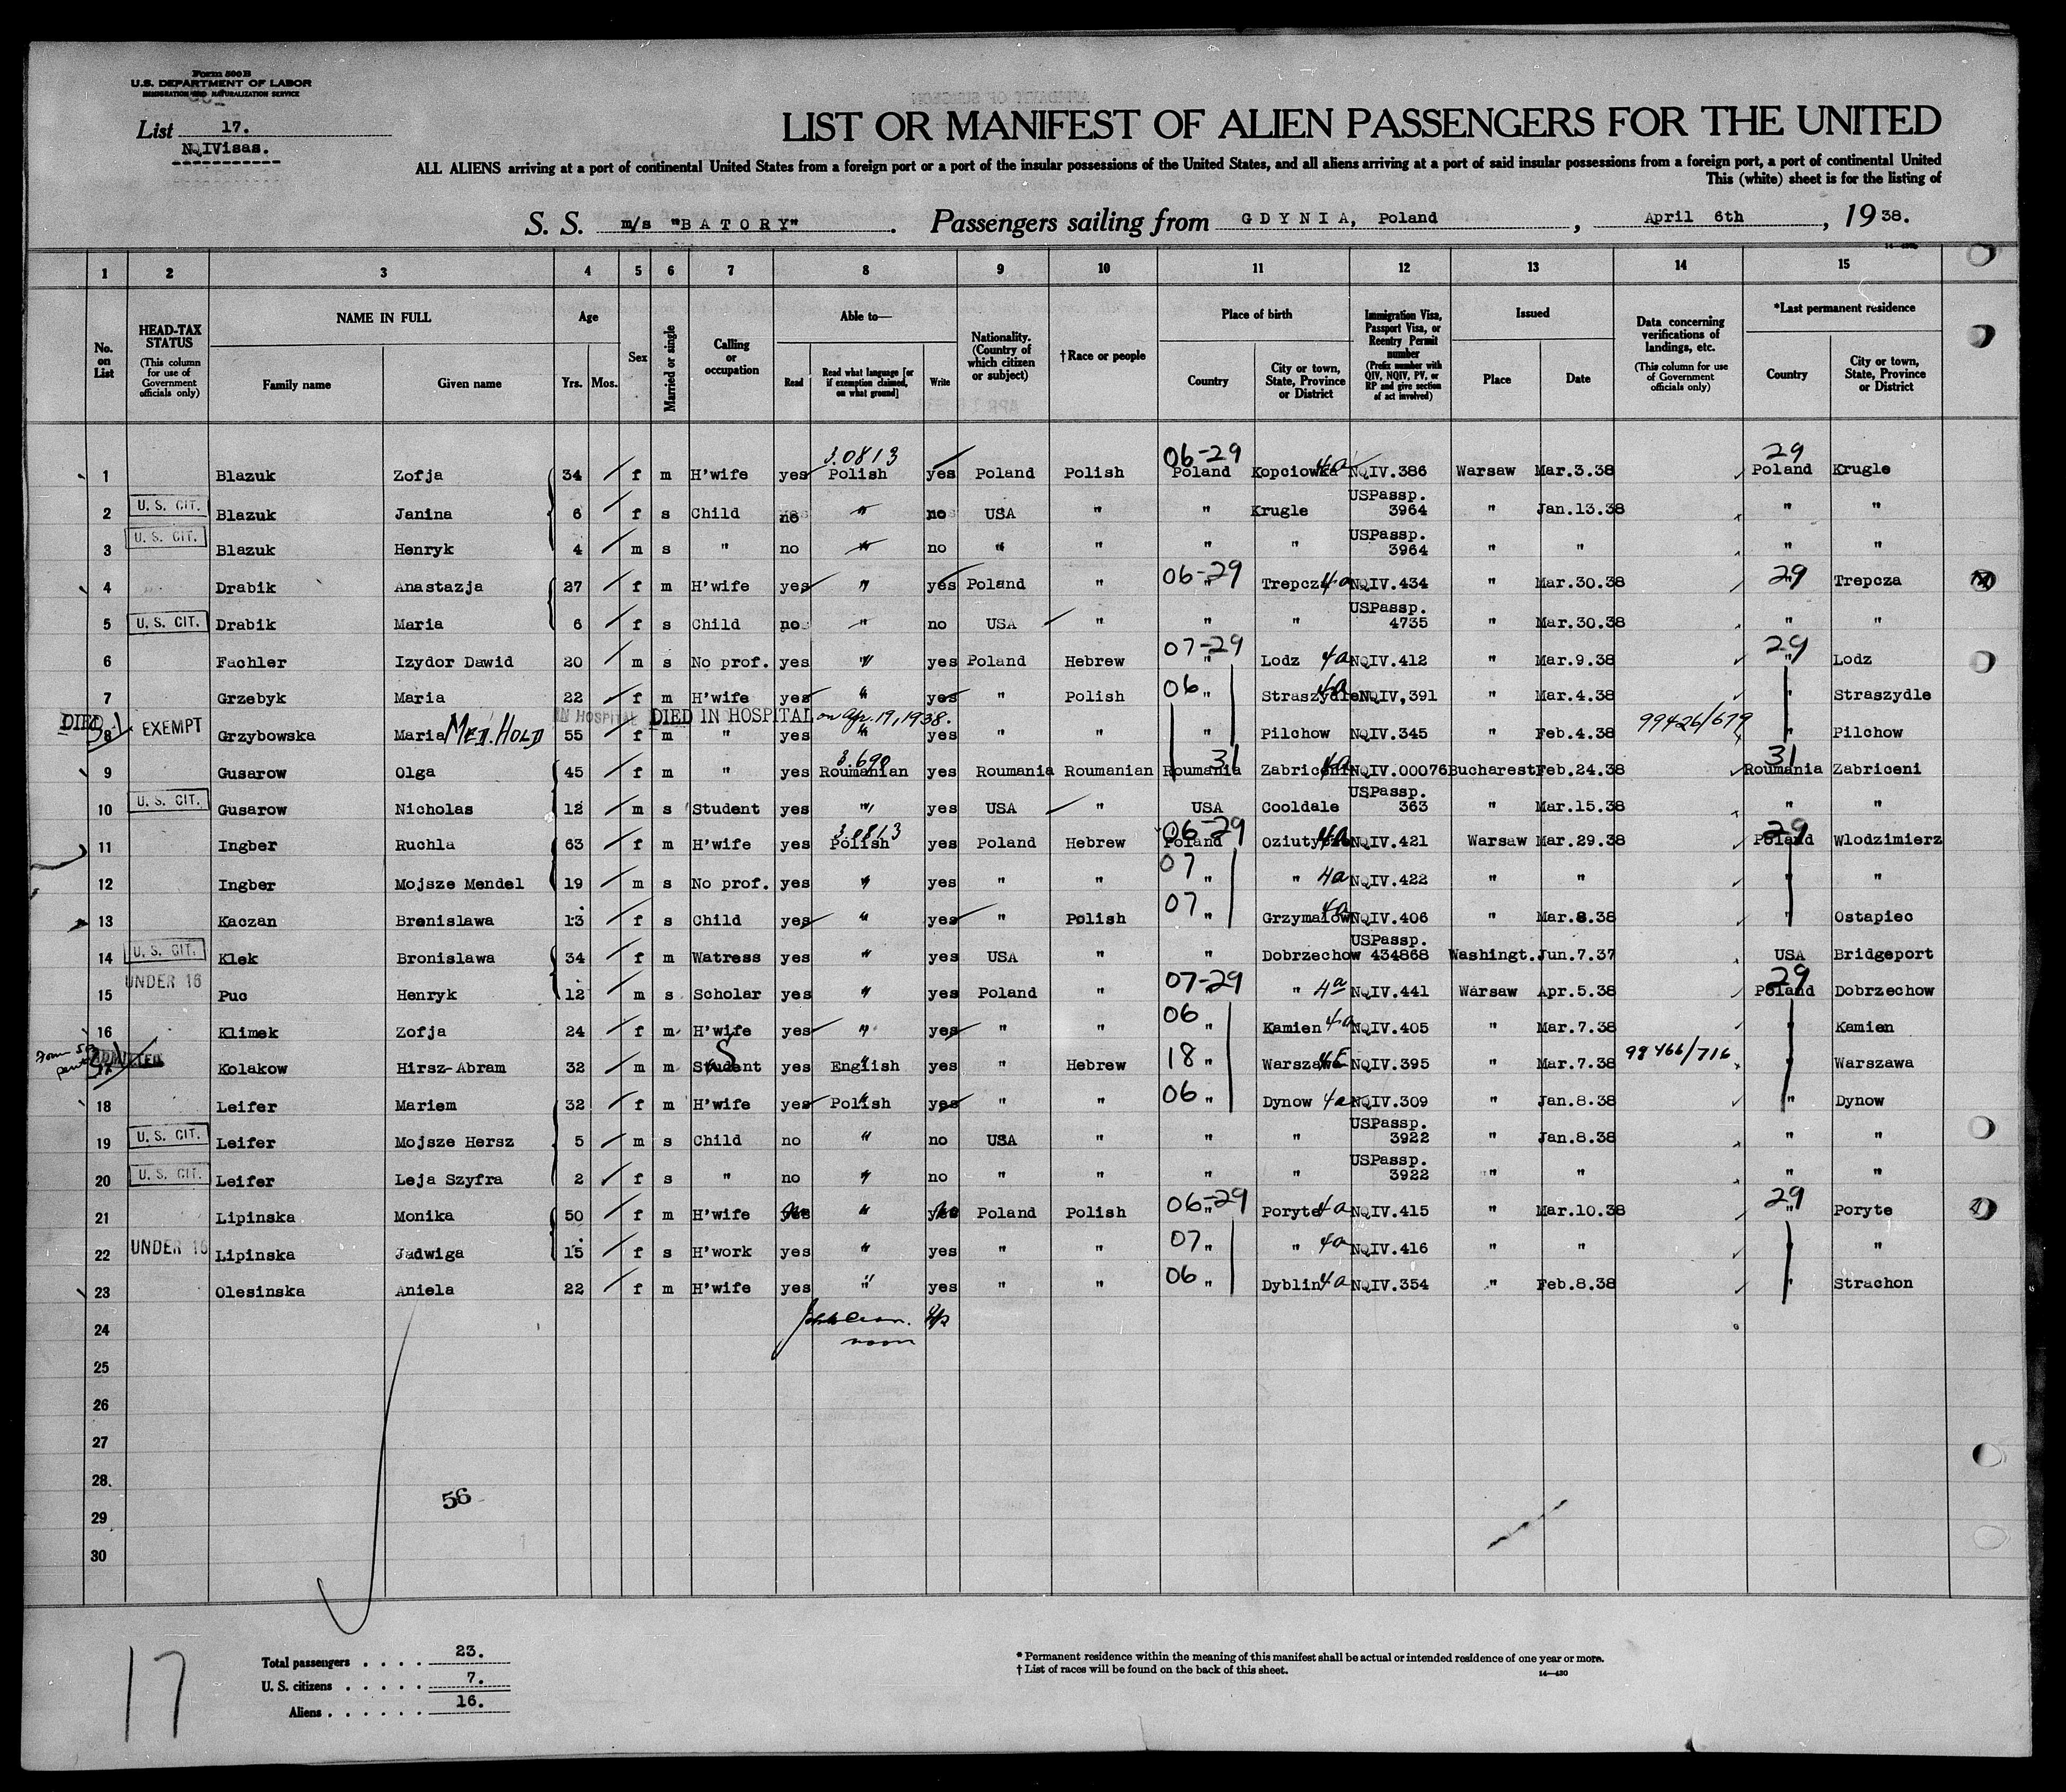 Form 500 B
U.S. DEPARTMENT OF LABOR
IMMIGRATION AND NATURALIZATION SERVICE
List 17.
NQIVisas.
LIST OR MANIFEST OF ALIEN PASSENGERS FOR THE UNITED
ALL ALIENS arriving at a port of continental United States from a foreign port or a port of the insular possessions of the United States, and all aliens arriving at a port of said insular possessions from a foreign port, a port of continental United
This (white) sheet is for the listing of
S. S. m/s "BATORY". Passengers sailing from GDYNIA, Poland, April 6th, 1938.
1 2 3 4 5 6 7 8 9 10 11 12 13 14 15
No. on List
HEAD-TAX STATUS (This column for use of Government officials only)
NAME IN FULL
Family name Given name
Age
Yrs. Mos.
Sex
Married or single
Calling or occupation
Able to—
Read Read what language [or if exemption claimed, on what ground] Write
Nationality. (Country of which citizen or subject)
†Race or people
Place of birth
Country City or town, State, Province or District
Immigration Visa, Passport Visa, or Reentry Permit number (Prefix number with QIV, NQIV, PV, or RP and give section of act involved)
Issued
Place Date
Data concerning verifications of landings, etc. (This column for use of Government officials only)
*Last permanent residence
Country City or town, State, Province or District
3.0813 06-29 29
1 Blazuk Zofja 34 f m H'wife yes Polish yes Poland Polish Poland Kopciowka 4a NQIV.386 Warsaw Mar.3.38 Poland Krugle
2 U. S. CIT. Blazuk Janina 6 f s Child no " no USA " " Krugle USPassp. 3964 " Jan.13.38 " "
3 U. S. CIT. Blazuk Henryk 4 m s " no " no " " " " USPassp. 3964 " " " "
4 Drabik Anastazja 27 f m H'wife yes " yes Poland " 06-29 " Trepcza 4a NQIV.434 " Mar.30.38 29 " Trepcza
5 U. S. CIT. Drabik Maria 6 f s Child no " no USA " " " USPassp. 4735 " Mar.30.38 " "
6 Fachler Izydor Dawid 20 m s No prof. yes " yes Poland Hebrew 07-29 " Lodz 4a NQIV.412 " Mar.9.38 29 " Lodz
7 Grzebyk Maria 22 f m H'wife yes " yes " Polish 06 " Straszydle 4a NQIV,391 " Mar.4.38 " Straszydle
DIED IN HOSPITAL DIED IN HOSPITAL on Apr. 19, 1938.
8 EXEMPT Grzybowska Maria MED. HOLD 55 f m " yes " yes " " " Pilchow NQIV.345 " Feb.4.38 99426/679 " Pilchow
3.690 31 31
9 Gusarow Olga 45 f m " yes Roumanian yes Roumania Roumanian Roumania Zabriceni 4a NQIV.00076 Bucharest Feb.24.38 Roumania Zabriceni
10 U. S. CIT. Gusarow Nicholas 12 m s Student yes " yes USA " USA Cooldale USPassp. 363 " Mar.15.38 " "
3.0813 06-29 29
11 Ingber Ruchla 63 f m H'wife yes Polish yes Poland Hebrew Poland 4a NQIV.421 Warsaw Mar.29.38 Poland Wlodzimierz
12 Ingber Mojsze Mendel 19 m s No prof. yes " yes " " 07 " " 4a NQIV.422 " " " "
13 Kaczan Bronislawa 13 f s Child yes " yes " Polish 07 " Grzymalow 4a NQIV.406 " Mar.8.38 " Ostapiec
14 U. S. CIT. Klek Bronislawa 34 f m Watress yes " yes USA " " Dobrzechow USPassp. 434868 Washingt. Jun.7.37 USA Bridgeport
15 UNDER 16 Puc Henryk 12 m s Scholar yes " yes Poland " 07-29 " 4a NQIV.441 Warsaw Apr.5.38 29 Poland Dobrzechow
16 Klimek Zofja 24 f m H'wife yes " yes " " 06 " Kamien 4a NQIV.405 " Mar.7.38 " Kamien
17 ADMITTED Kolakow Hirsz-Abram 32 m m Student S yes English yes " Hebrew 18 " Warszawa 4E NQIV.395 " Mar.7.38 98466/716 " Warszawa
18 Leifer Mariem 32 f m H'wife yes Polish yes " " 06 " Dynow 4a NQIV.309 " Jan.8.38 " Dynow
19 U. S. CIT. Leifer Mojsze Hersz 5 m s Child no " no USA " " " USPassp. 3922 " Jan.8.38 " "
20 U. S. CIT. Leifer Leja Szyfra 2 f s " no " no " " " " USPassp. 3922 " " " "
21 Lipinska Monika 50 f m H'wife no " no Poland Polish 06-29 " Poryte 4a NQIV.415 " Mar.10.38 29 " Poryte
22 UNDER 16 Lipinska Jadwiga 15 f s H'work yes " yes " " 07 " " 4a NQIV.416 " " " "
23 Olesinska Aniela 22 f m H'wife yes " yes " " 06 " Dyblin 4a NQIV.354 " Feb.8.38 " Strachon
24
25
26
27
28
56
29
30
17
Total passengers . . . . 23.
U. S. citizens . . . . . 7.
Aliens . . . . . . 16.
* Permanent residence within the meaning of this manifest shall be actual or intended residence of one year or more.
† List of races will be found on the back of this sheet.
14—430